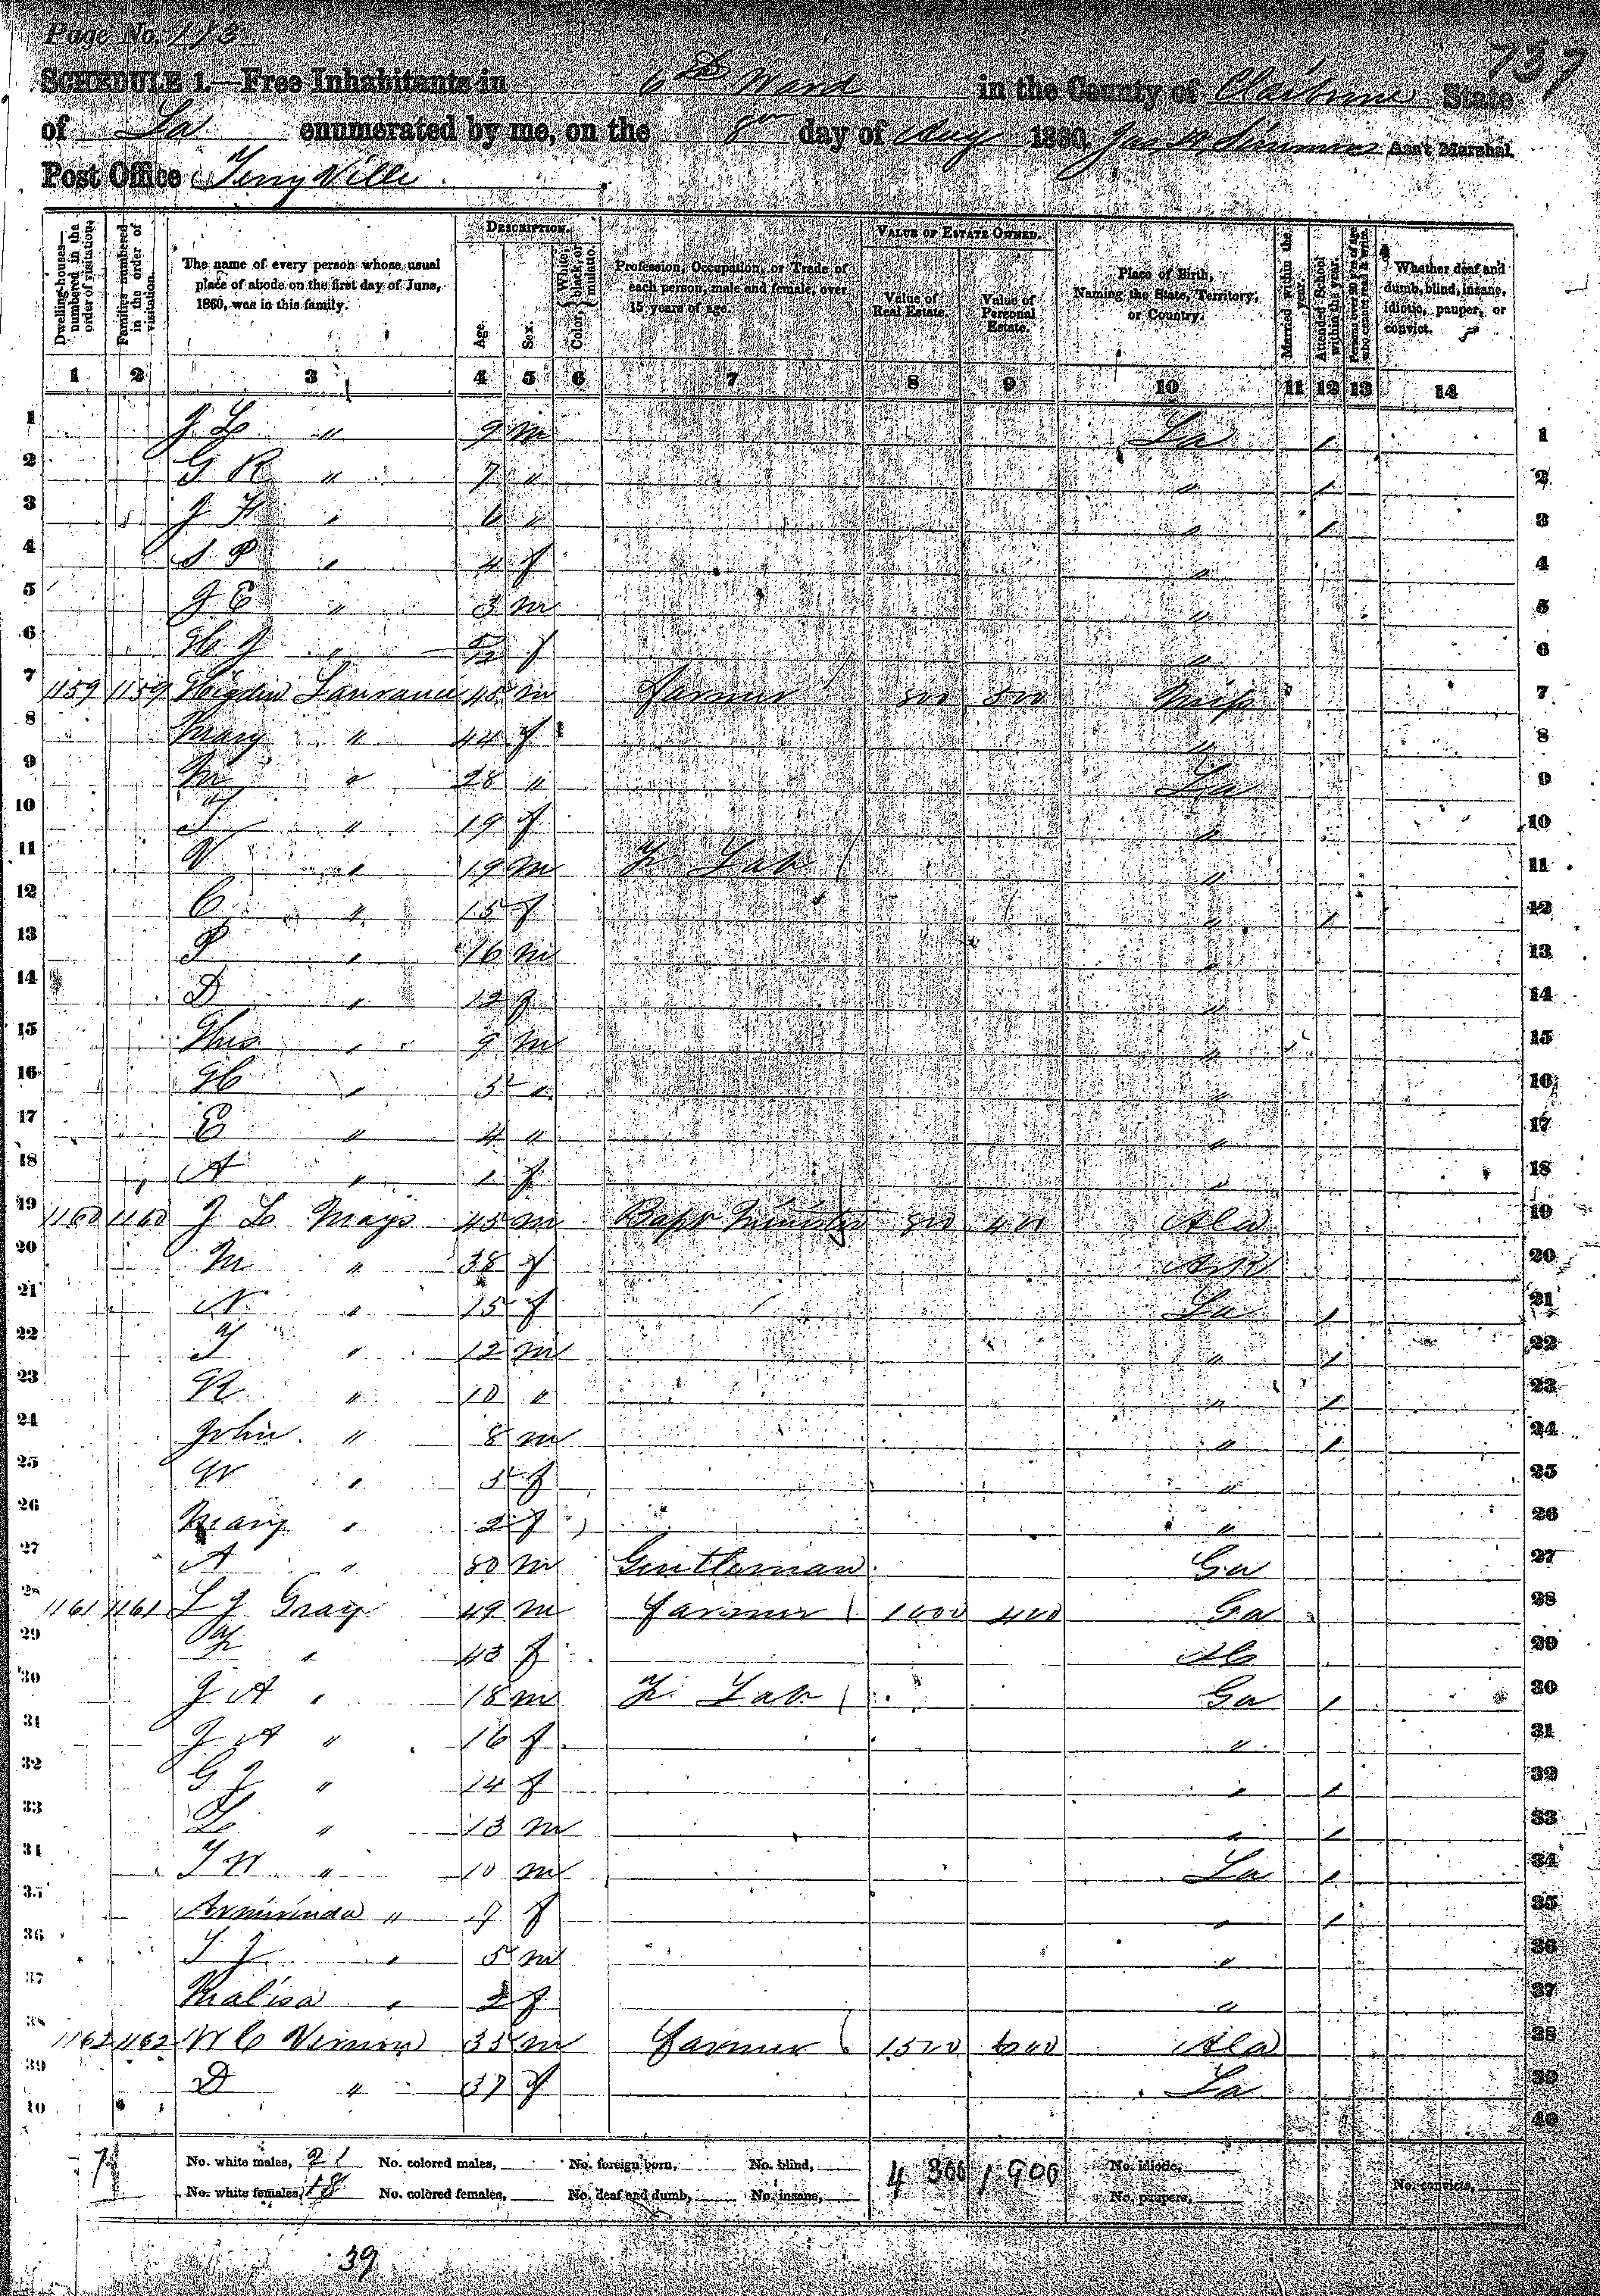 Page No. 113
737
SCHEDULE 1.—Free Inhabitants in 6th Ward in the County of Claiborne State
of La enumerated by me, on the 8th day of Aug 1860. Jas Simmons Ass't Marshal.
Post Office
Dwelling-houses—numbered in the order of visitation.
Families numbered in the order of visitation.
The name of every person whose usual place of abode on the first day of June, 1860, was in this family.
DESCRIPTION.
Age.
Sex.
Color, White, black, or mulatto.
Profession, Occupation, or Trade of each person, male and female, over 15 years of age.
VALUE OF ESTATE OWNED.
Value of Real Estate.
Value of Personal Estate.
Place of Birth, Naming the State, Territory, or Country.
Married within the year.
Attended School within the year.
Persons over 20 y'rs of age who cannot read & write.
Whether deaf and dumb, blind, insane, idiotic, pauper, or convict.
1 2 3 4 5 6 7 8 9 10 11 12 13 14
1 J L " 9 m La / 1
2 G R " 7 " " / 2
3 J " 6 " " / 3
4 S P " 4 f " 4
5 J E " 3 m " 5
6 H J " f " 6
7 1159 1159 Laurance 45 m Farmer 500 Miss 7
8 Mary " 44 f " 8
9 M " 28 " La 9
10 " 19 f " 10
11 V " 19 m F Lab " 11
12 C " 15 f " / 12
13 P " 16 m " 13
14 D " 12 f " 14
15 Thos " 9 m " 15
16 H " 5 " " 16
17 E " 4 " " 17
18 A " 1 f " 18
19 1160 1160 J L Mays 45 m Bapt Minister Ala 19
20 M " 38 f Ark 20
21 N " 15 f La / 21
22 " 12 m " / 22
23 R " 10 " " / 23
24 John " 8 m " / 24
25 W " 5 f " 25
26 Mary " 2 f " 26
27 A " 80 m Gentleman Ga 27
28 1161 1161 L J Gray 49 m Farmer 400 Ga 28
29 " 43 f 29
30 J A " 18 m F. Lab Ga / 30
31 J A " 16 f " 31
32 G J " 14 f " / 32
33 L " 13 m " / 33
34 " 10 m La / 34
35 Armirinda " 7 f " / 35
36 " 5 m " 36
37 Malisa " 2 f " 37
38 1162 1162 W C Vernon 35 m Farmer 1500 Ala 38
39 D " 37 f La 39
40 40
No. white males, 21 No. colored males, No. foreign born, No. blind, 4 300 1 900 No. idiotic,
No. white females, 18 No. colored females, No. deaf and dumb, No. insane, No. paupers, No. convicts,
39